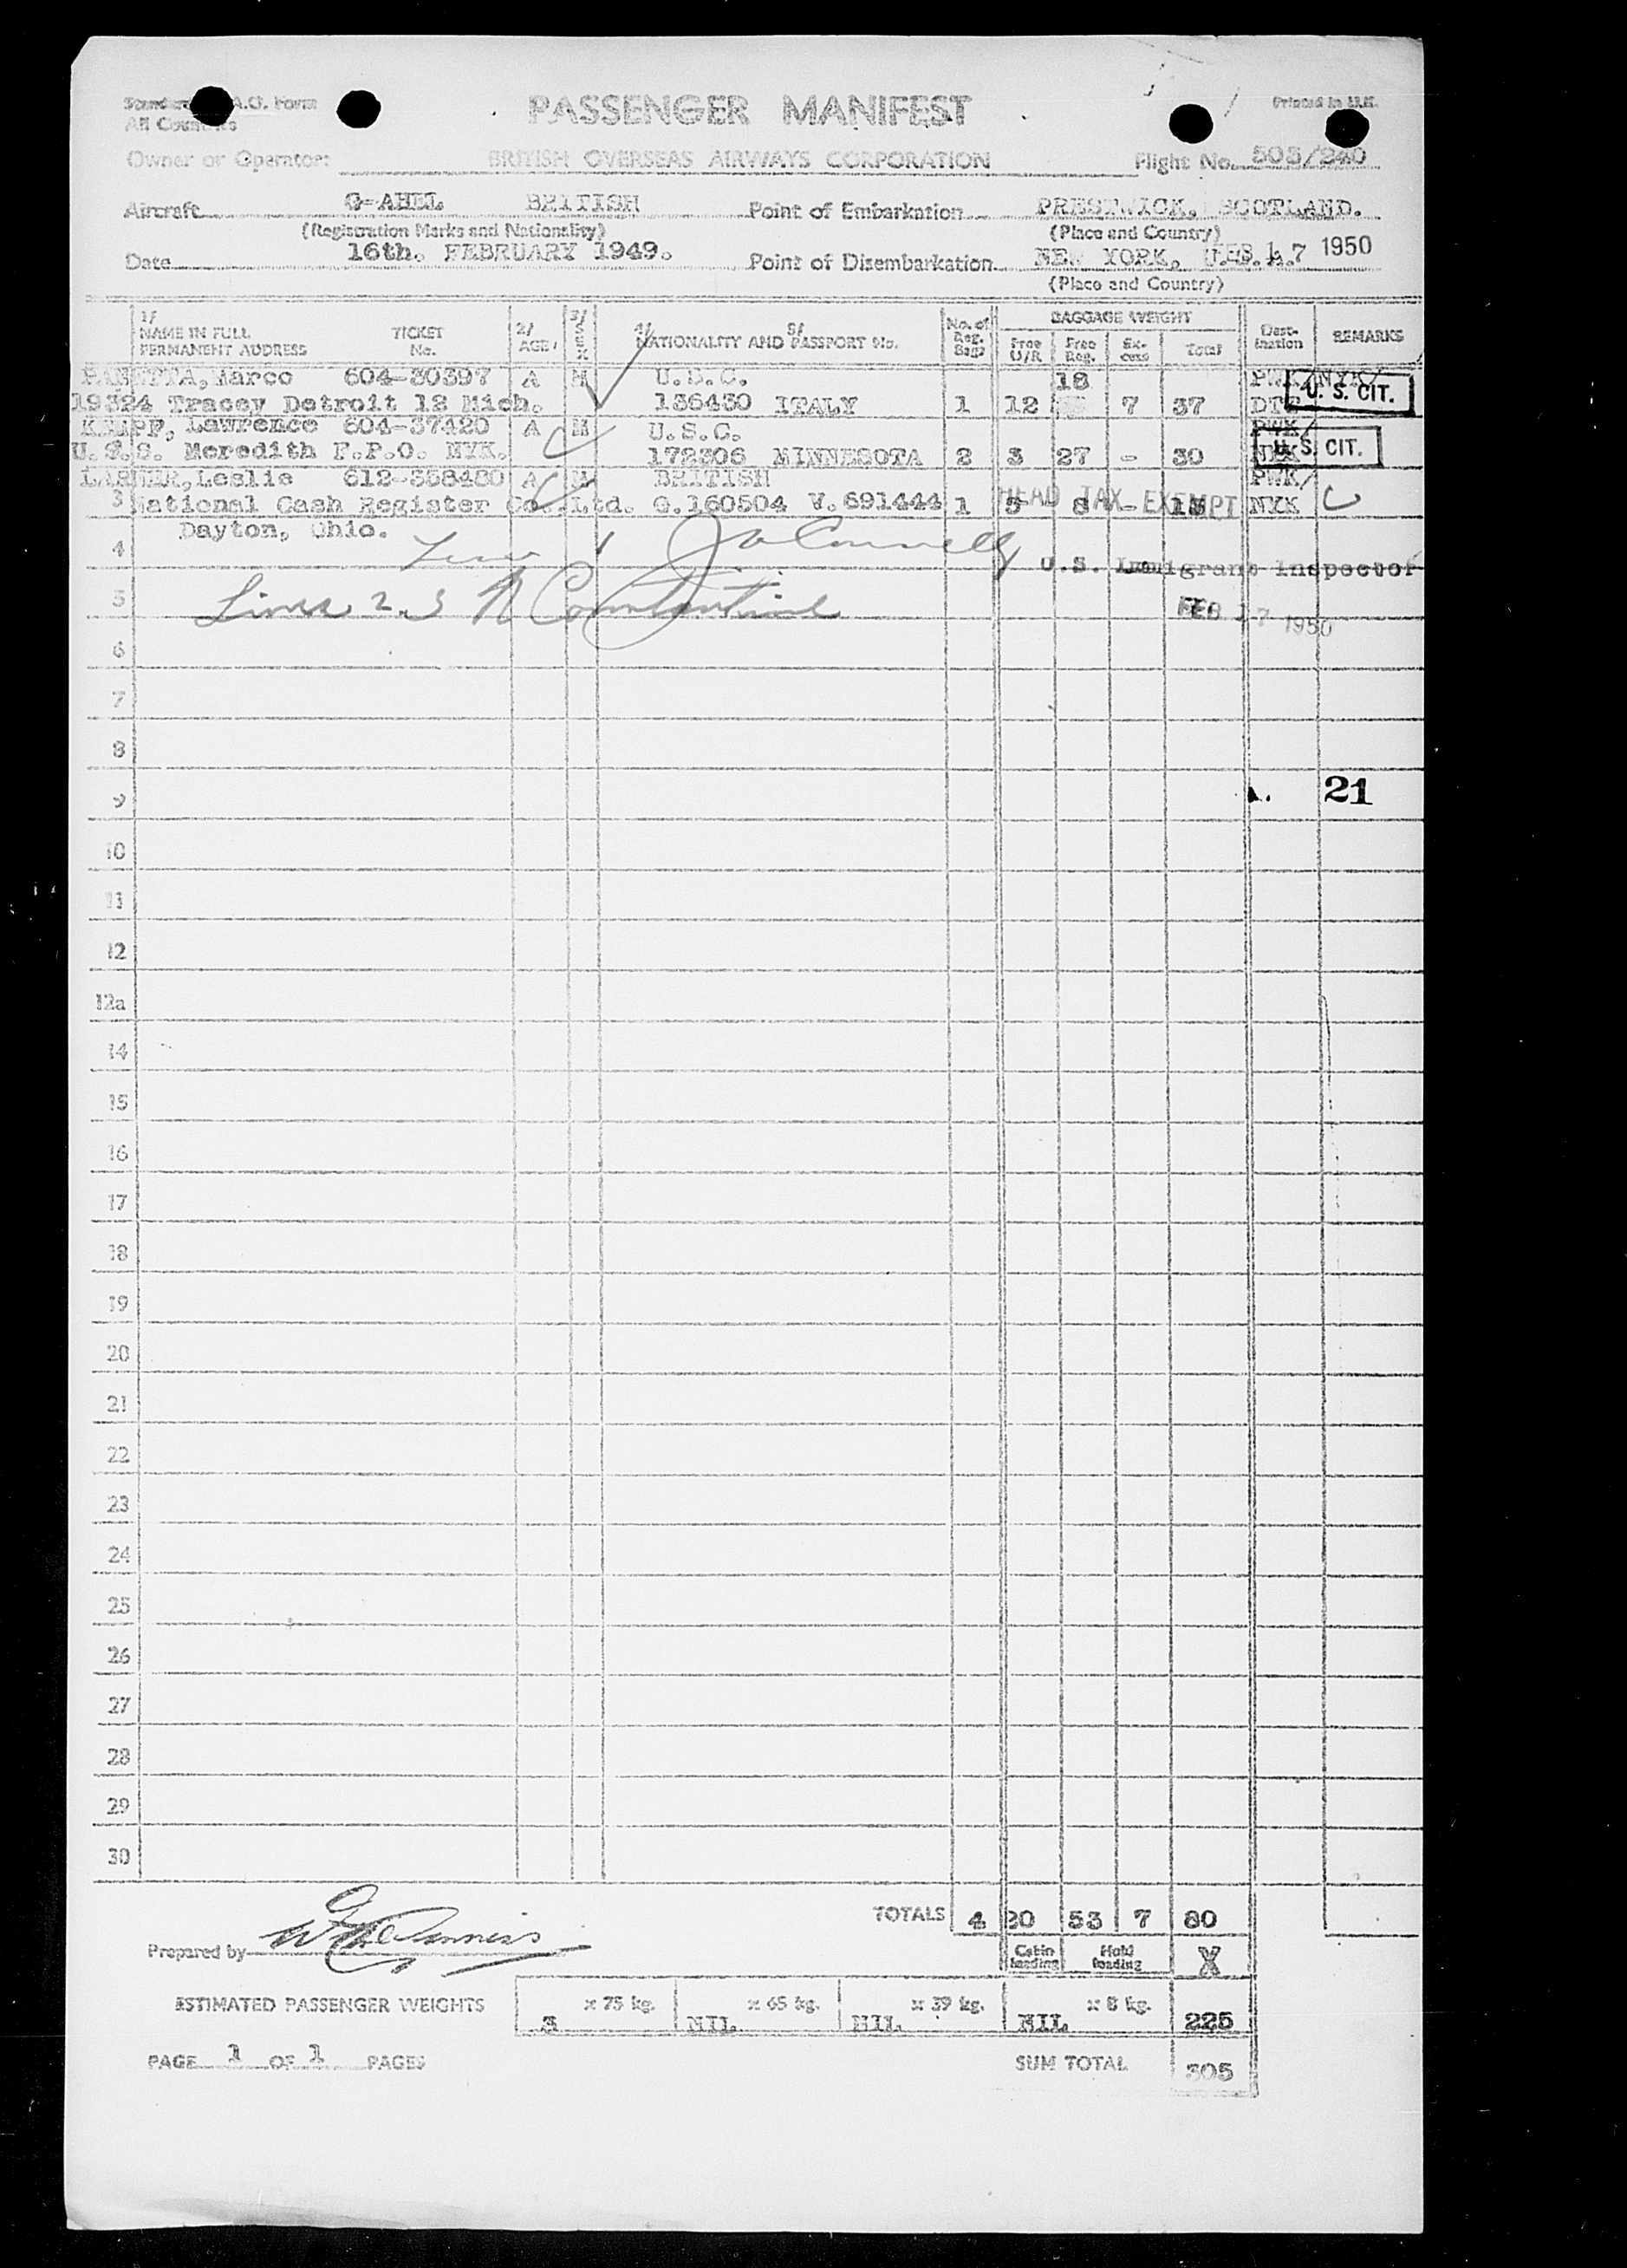 Standard A.O. Form
All Countries
Printed in U.K.
PASSENGER MANIFEST
Owner or Operator: BRITISH OVERSEAS AIRWAYS CORPORATION Flight No. 505/240
Aircraft G-AHEL BRITISH Point of Embarkation PRESTWICK, SCOTLAND.
(Registration Marks and Nationality) (Place and Country)
Date 16th. FEBRUARY 1949. Point of Disembarkation NEW YORK, U.S.A. FEB 17 1950
(Place and Country)
1/ NAME IN FULL PERMANENT ADDRESS TICKET No. 2/ AGE 3/ SEX 4/ 5/ NATIONALITY AND PASSPORT No. No. of Reg. Bags BAGGAGE WEIGHT Free U/R Free Reg. Ex-cess Total Dest-ination REMARKS
Marco 604-30397 A M U.S.C. 18 PWK/NYK/
19324 Tracey Detroit 12 Mich. 136430 ITALY 1 12 7 37 U. S. CIT.
Lawrence 604-37420 A M U.S.C. PWK/
U.S.S. Meredith F.P.O. NYK. 172306 MINNESOTA 2 3 27 - 30 NYK U. S. CIT.
LARNER, Leslie 612-358480 A M BRITISH PWK/
3 National Cash Register Co. Ltd. G.160504 V.691444 1 5 8 - 13 NYK HEAD TAX EXEMPT
Dayton, Ohio.
4 Line 1 J O Connelly
U.S. Immigrant Inspector
5 Lines 2.3
FEB 17 1950
6
7
8
9 21
10
11
12
12a
14
15
16
17
18
19
20
21
22
23
24
25
26
27
28
29
30
TOTALS 4 20 53 7 80
Prepared by Cabin loading Hold loading X
ESTIMATED PASSENGER WEIGHTS 3 x 75 kg. NIL x 65 kg. NIL x 39 kg. NIL x 8 kg. 225
PAGE 1 OF 1 PAGES SUM TOTAL 305